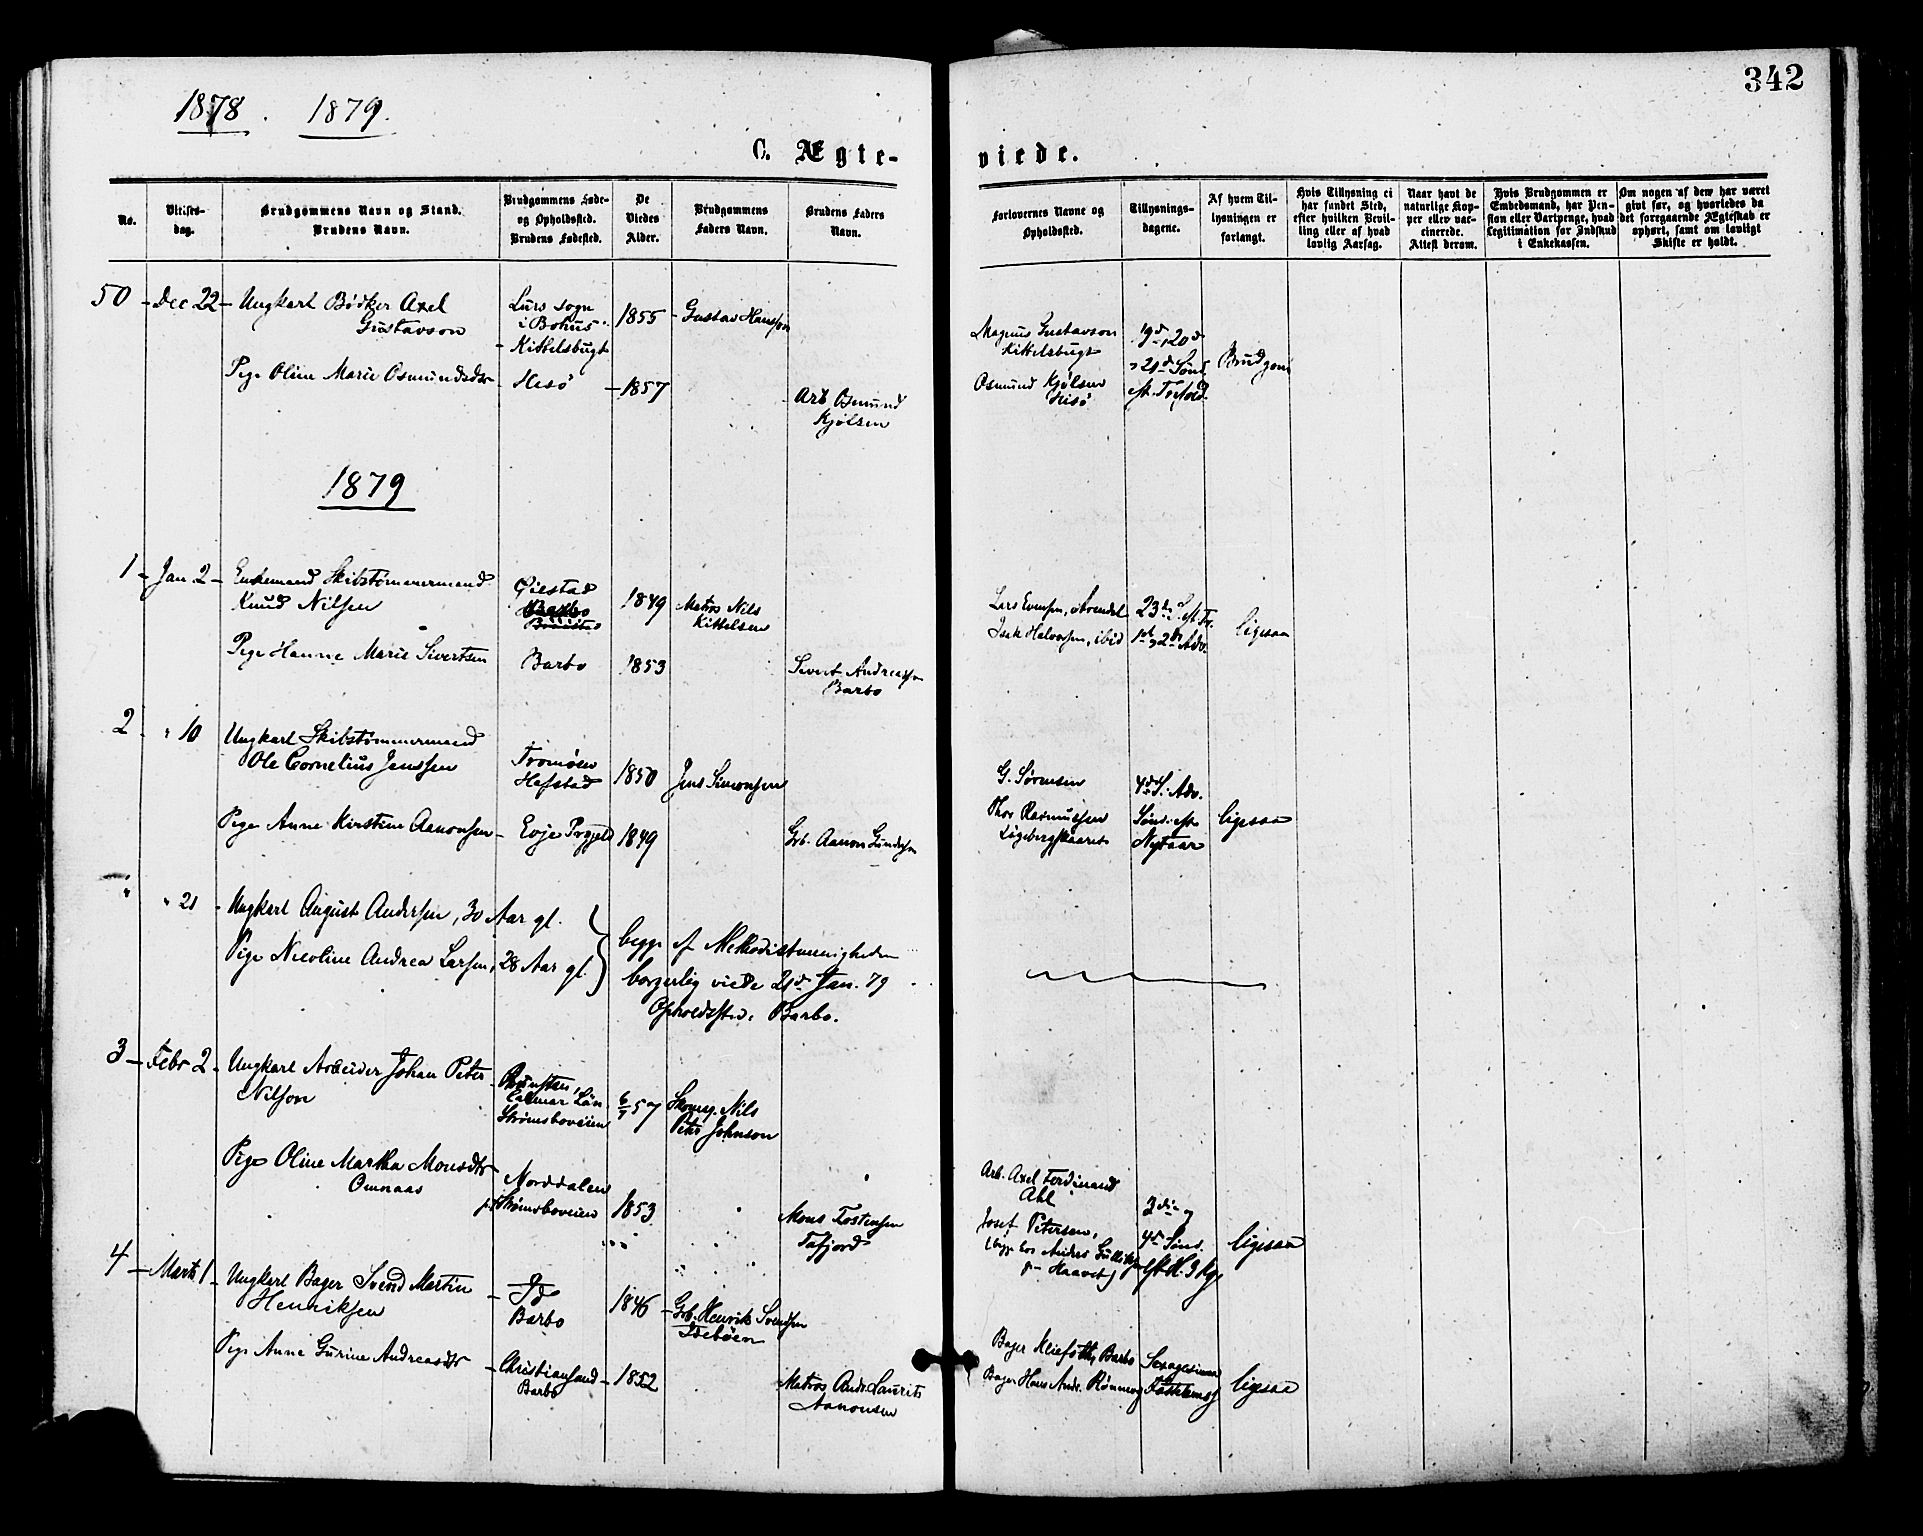 342
1878. 1879.
C. Ægte-
viede.
No.
Vielses-
dag.
Brudgommens Navn og Stand.
Brudens Navn.
Brudgommens Føde-
og Opholdssted.
Brudens Fødested.
De
Viedes
Alder.
Brudgommens
Faders Navn.
Brudens Faders
Navn.
Forlovernes Navne og
Opholdssted.
Tillysnings-
dagene.
Af hvem Til-
lysningen er
forlangt.
Hvis Tillysning ei
har fundet Sted,
efter hvilken Bevil-
ling eller af hvad
lovlig Aarsag.
Naar havt de
naturlige Kop-
per eller vac-
cinerede.
Attest derom.
Hvis Brudgommen er
Embedsmand, har Pen-
sion eller Vartpenge, hvad
Legitimation for Indskud
i Enkekassen.
Om nogen af dem har været
gift før, og hvorledes da
det foregaaende Ægteskab er
ophørt, samt om lovligt
Skifte er holdt.
50 - Dec 22 - Ungkarl Bødker Axel
Gustavson
Lurs sogn
i Bohus
- Kittelsbugt
1855 - Gustav Hansson
Magnus Gustavson
Kittelsbugt
19d, 20d
21d Sønd.
Brudgom
Pige Oline Marie Osmundsdtr
Hisø - 1857
Arb Osmund
Kjølsen
Osmund Kjølsen
Hisø
1879
1 - Jan 2 - Enkemand Skibstømmermand
Knud Nilsen
Øiestad
Barbo
1849
Matros Nils
Kittelsen
Lars Evensen, Arendal
Isak Halvorsen, ibid
23de S. e. Tr.
1st 2den Adv.
ligesaa
Pige Hanne Marie Sivertsen
Barbo
1853
Sivert Andreassen
Barbo
2 " 10 Ungkarl Skibstømmermand
Ole Cornelius Jenssen
Tromøen
Hefstad
1850
Jens Simonsen
G. Sørensen
4de S. Adv.
Pige Anne Kirstine Aanonsen - Evje Prgjeld 1849
Grb. Aanon Gundersen
Thor Rasmussen
Sønd. eft.
Nytaar
ligesaa
" " 21 - Ungkarl August Andersen, 30 Aar gl.
Pige Nicoline Andrea Larsen, 28 Aar gl.
begge af Methodistmenigheden
borgerlig viede 21d Jan. 79
Opholdssted: Barbo.
3 - Febr 2 - Ungkarl Arbeider Johan Peter
Nilson
Calmar Län
Strømsboveien
6/7 57
Skomg. Nils
Peter Johnson
Pige Oline Martha Monsdtr
Omnaas
Norddalen
Strømsboveien
1853
Mons Tostensen
Tafjord
Arb. Axel Ferdinand
Ahl
Josef Petersen,
3die og
4de Sønd.
eft. H. 3 Kg.
ligesaa
4 - Marts 1 - Ungkarl Bager Svend Martin
Henriksen
- Id
Barbo
1846 - Grb. Henrik Svendsen
Pige Anne Gurine Andreasdtr
- Christiansand
Barbo
- 1852
Matros Andr. Laurits
Aanonsen
Bager Kleifoth, Barbo
Bager Hans Andr. Rønning
Sexagesima
Fastelavns
ligesaa